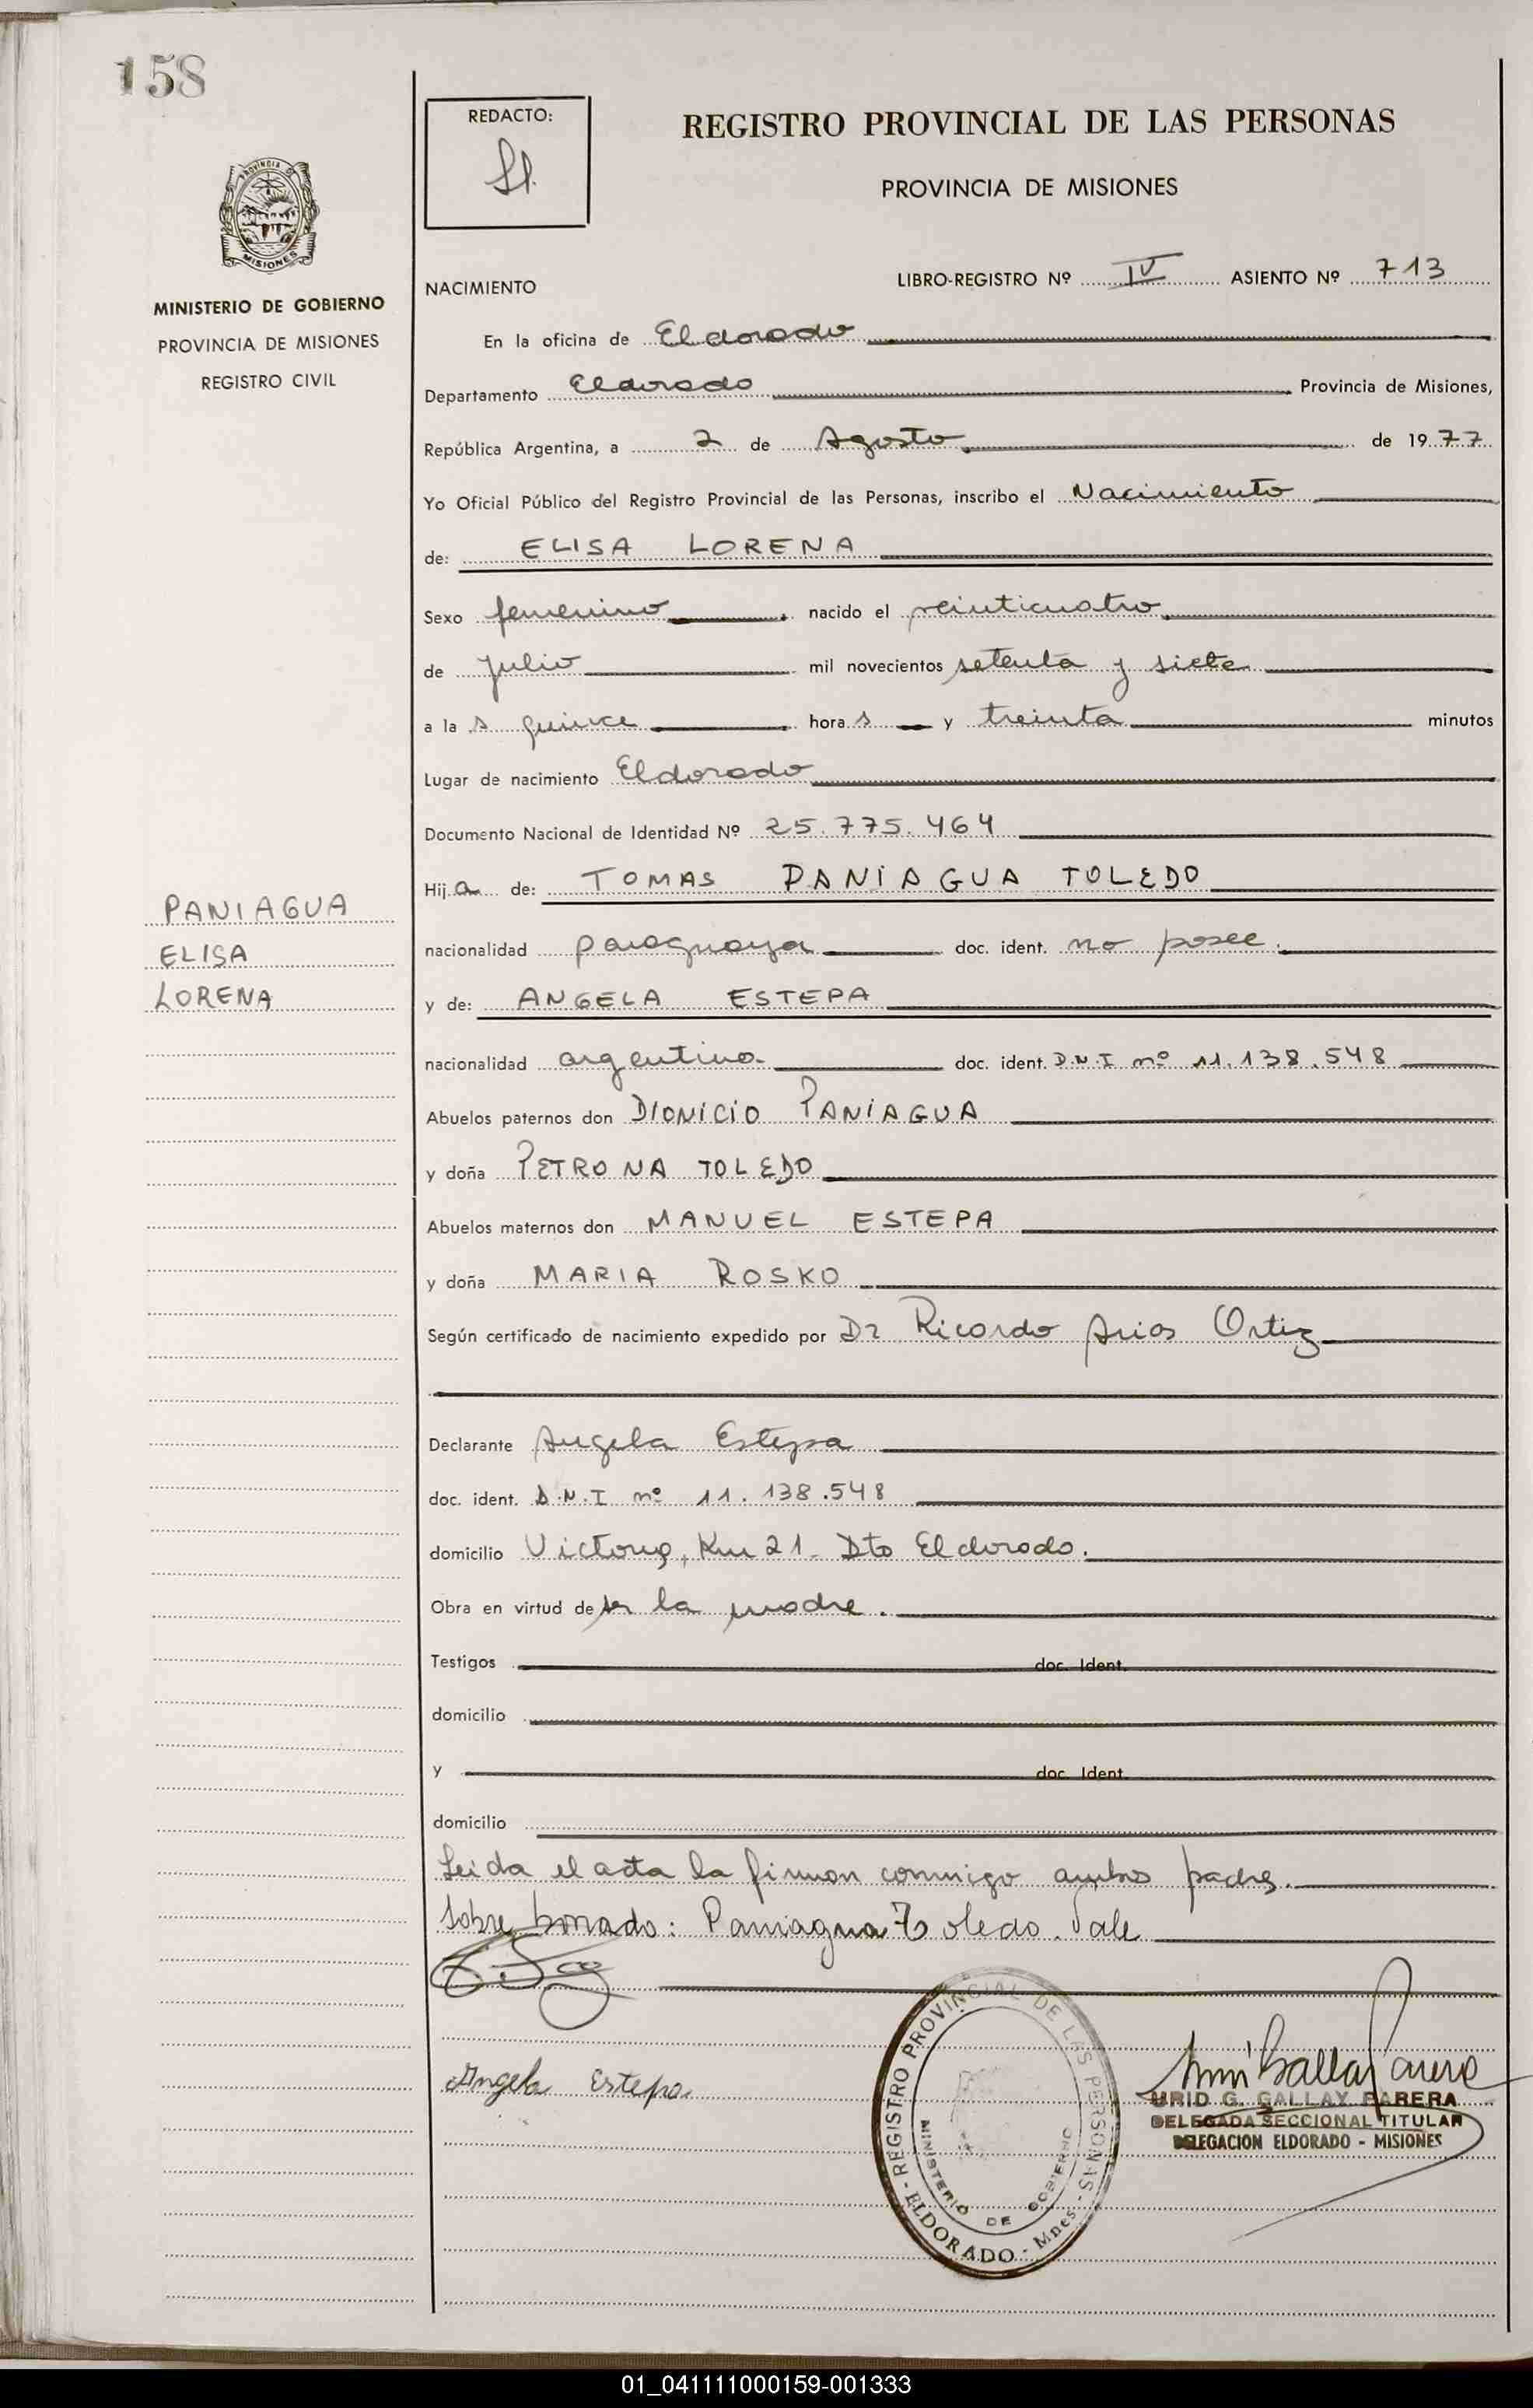 158
PROVINCIA DE
MISIONES
MINISTERIO DE GOBIERNO
PROVINCIA DE MISIONES
REGISTRO CIVIL
PANIAGUA
ELISA
LORENA
REDACTO:
REGISTRO PROVINCIAL DE LAS PERSONAS
PROVINCIA DE MISIONES
NACIMIENTO
LIBRO-REGISTRO Nº IV ASIENTO Nº 713
En la oficina de Eldorado
Departamento Eldorado Provincia de Misiones,
República Argentina, a 2 de Agosto de 1977
Yo Oficial Público del Registro Provincial de las Personas, inscribo el Nacimiento
de: ELISA LORENA
Sexo femenino nacido el veinticuatro
de julio mil novecientos setenta y siete
a la s quince hora s y treinta minutos
Lugar de nacimiento Eldorado
Documento Nacional de Identidad Nº 25.775.464
Hija de: TOMAS PANIAGUA TOLEDO
nacionalidad paraguaya doc. ident. no posee.
y de: ANGELA ESTEPA
nacionalidad argentina doc. ident. D.N.I nº 11.138.548
Abuelos paternos don DIONICIO PANIAGUA
y doña PETRONA TOLEDO
Abuelos maternos don MANUEL ESTEPA
y doña MARIA ROSKO
Según certificado de nacimiento expedido por Dr Ricardo Arias Ortiz
Declarante Angela Estepa
doc. ident. D.N.I nº 11.138.548
domicilio Victoria, Km 21 - Dto Eldorado.
Obra en virtud de ser la madre.
Testigos doc. Ident.
domicilio
y doc. Ident.
domicilio
Leida el acta la firman conmigo ambos padres.
Sobre borrado: Paniagua Toledo. Vale
Angela Estepa
REGISTRO PROVINCIAL DE LAS PERSONAS - ELDORADO - Mnes. -
MINISTERIO DE GOBIERNO
URID G. GALLAY PARERA
DELEGADA SECCIONAL TITULAR
DELEGACION ELDORADO - MISIONES
01_041111000159-001333